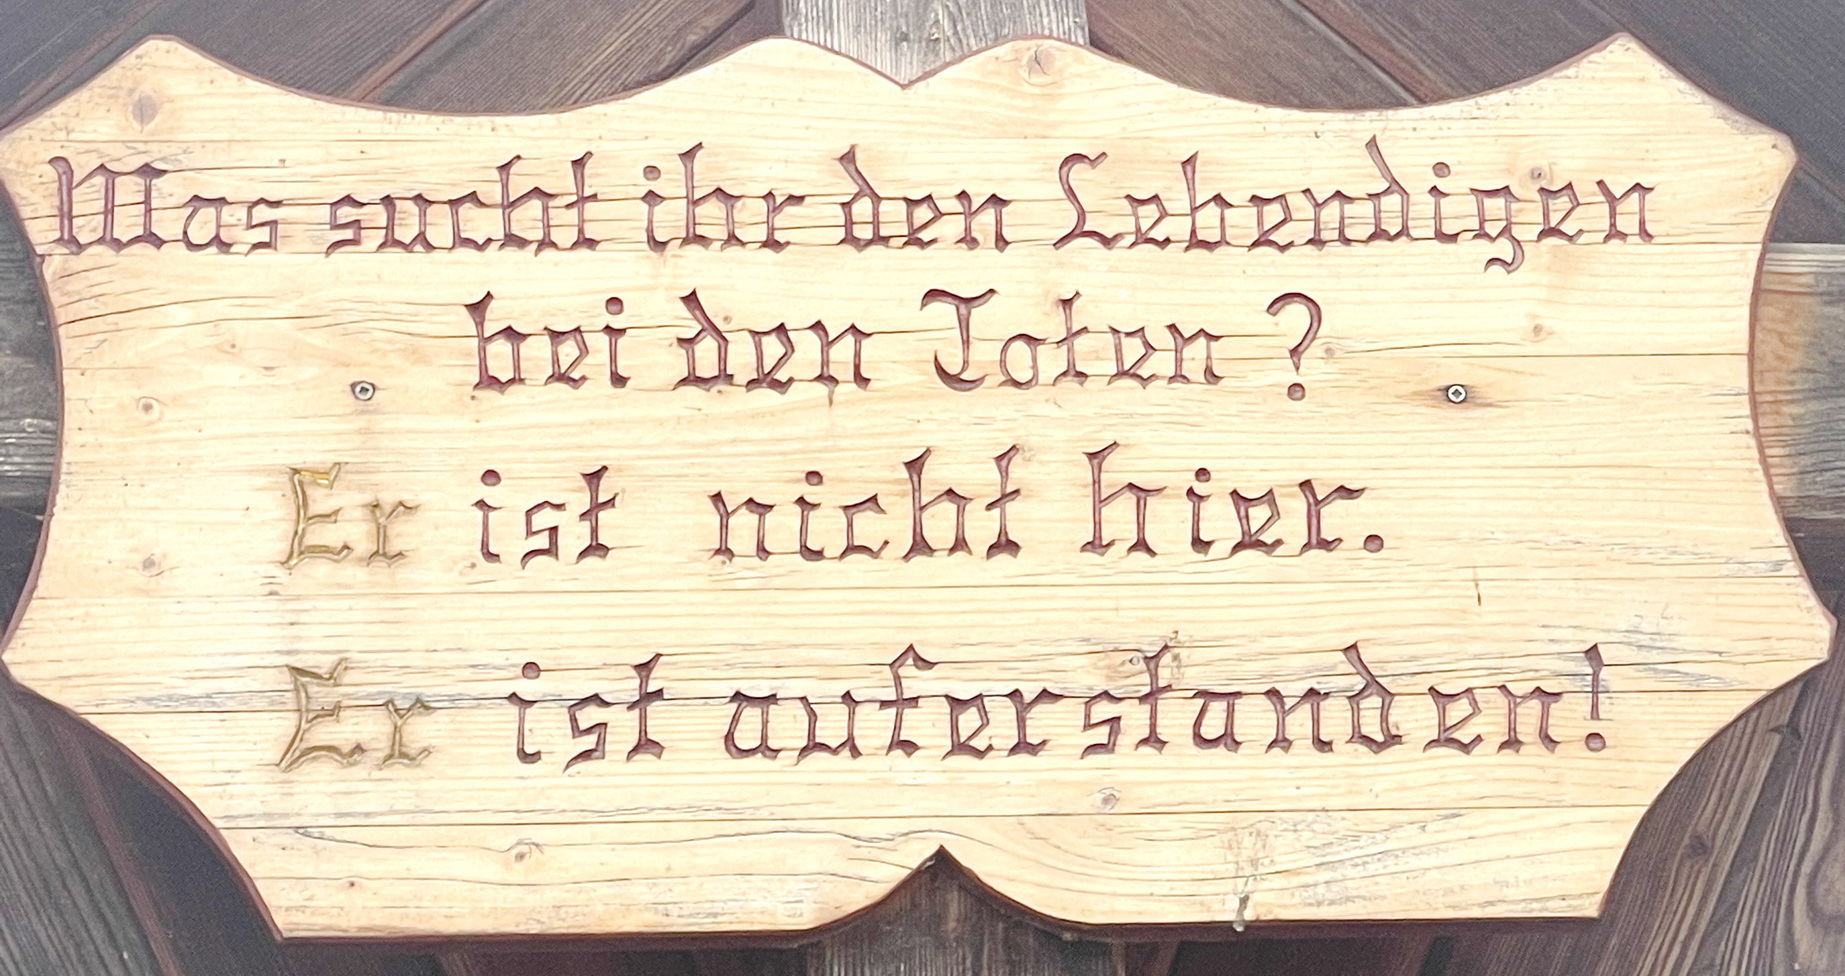 Was sucht ihr den Lebendigen
bei den Toten ?
Er ist nicht hier.
Er ist auferstanden!